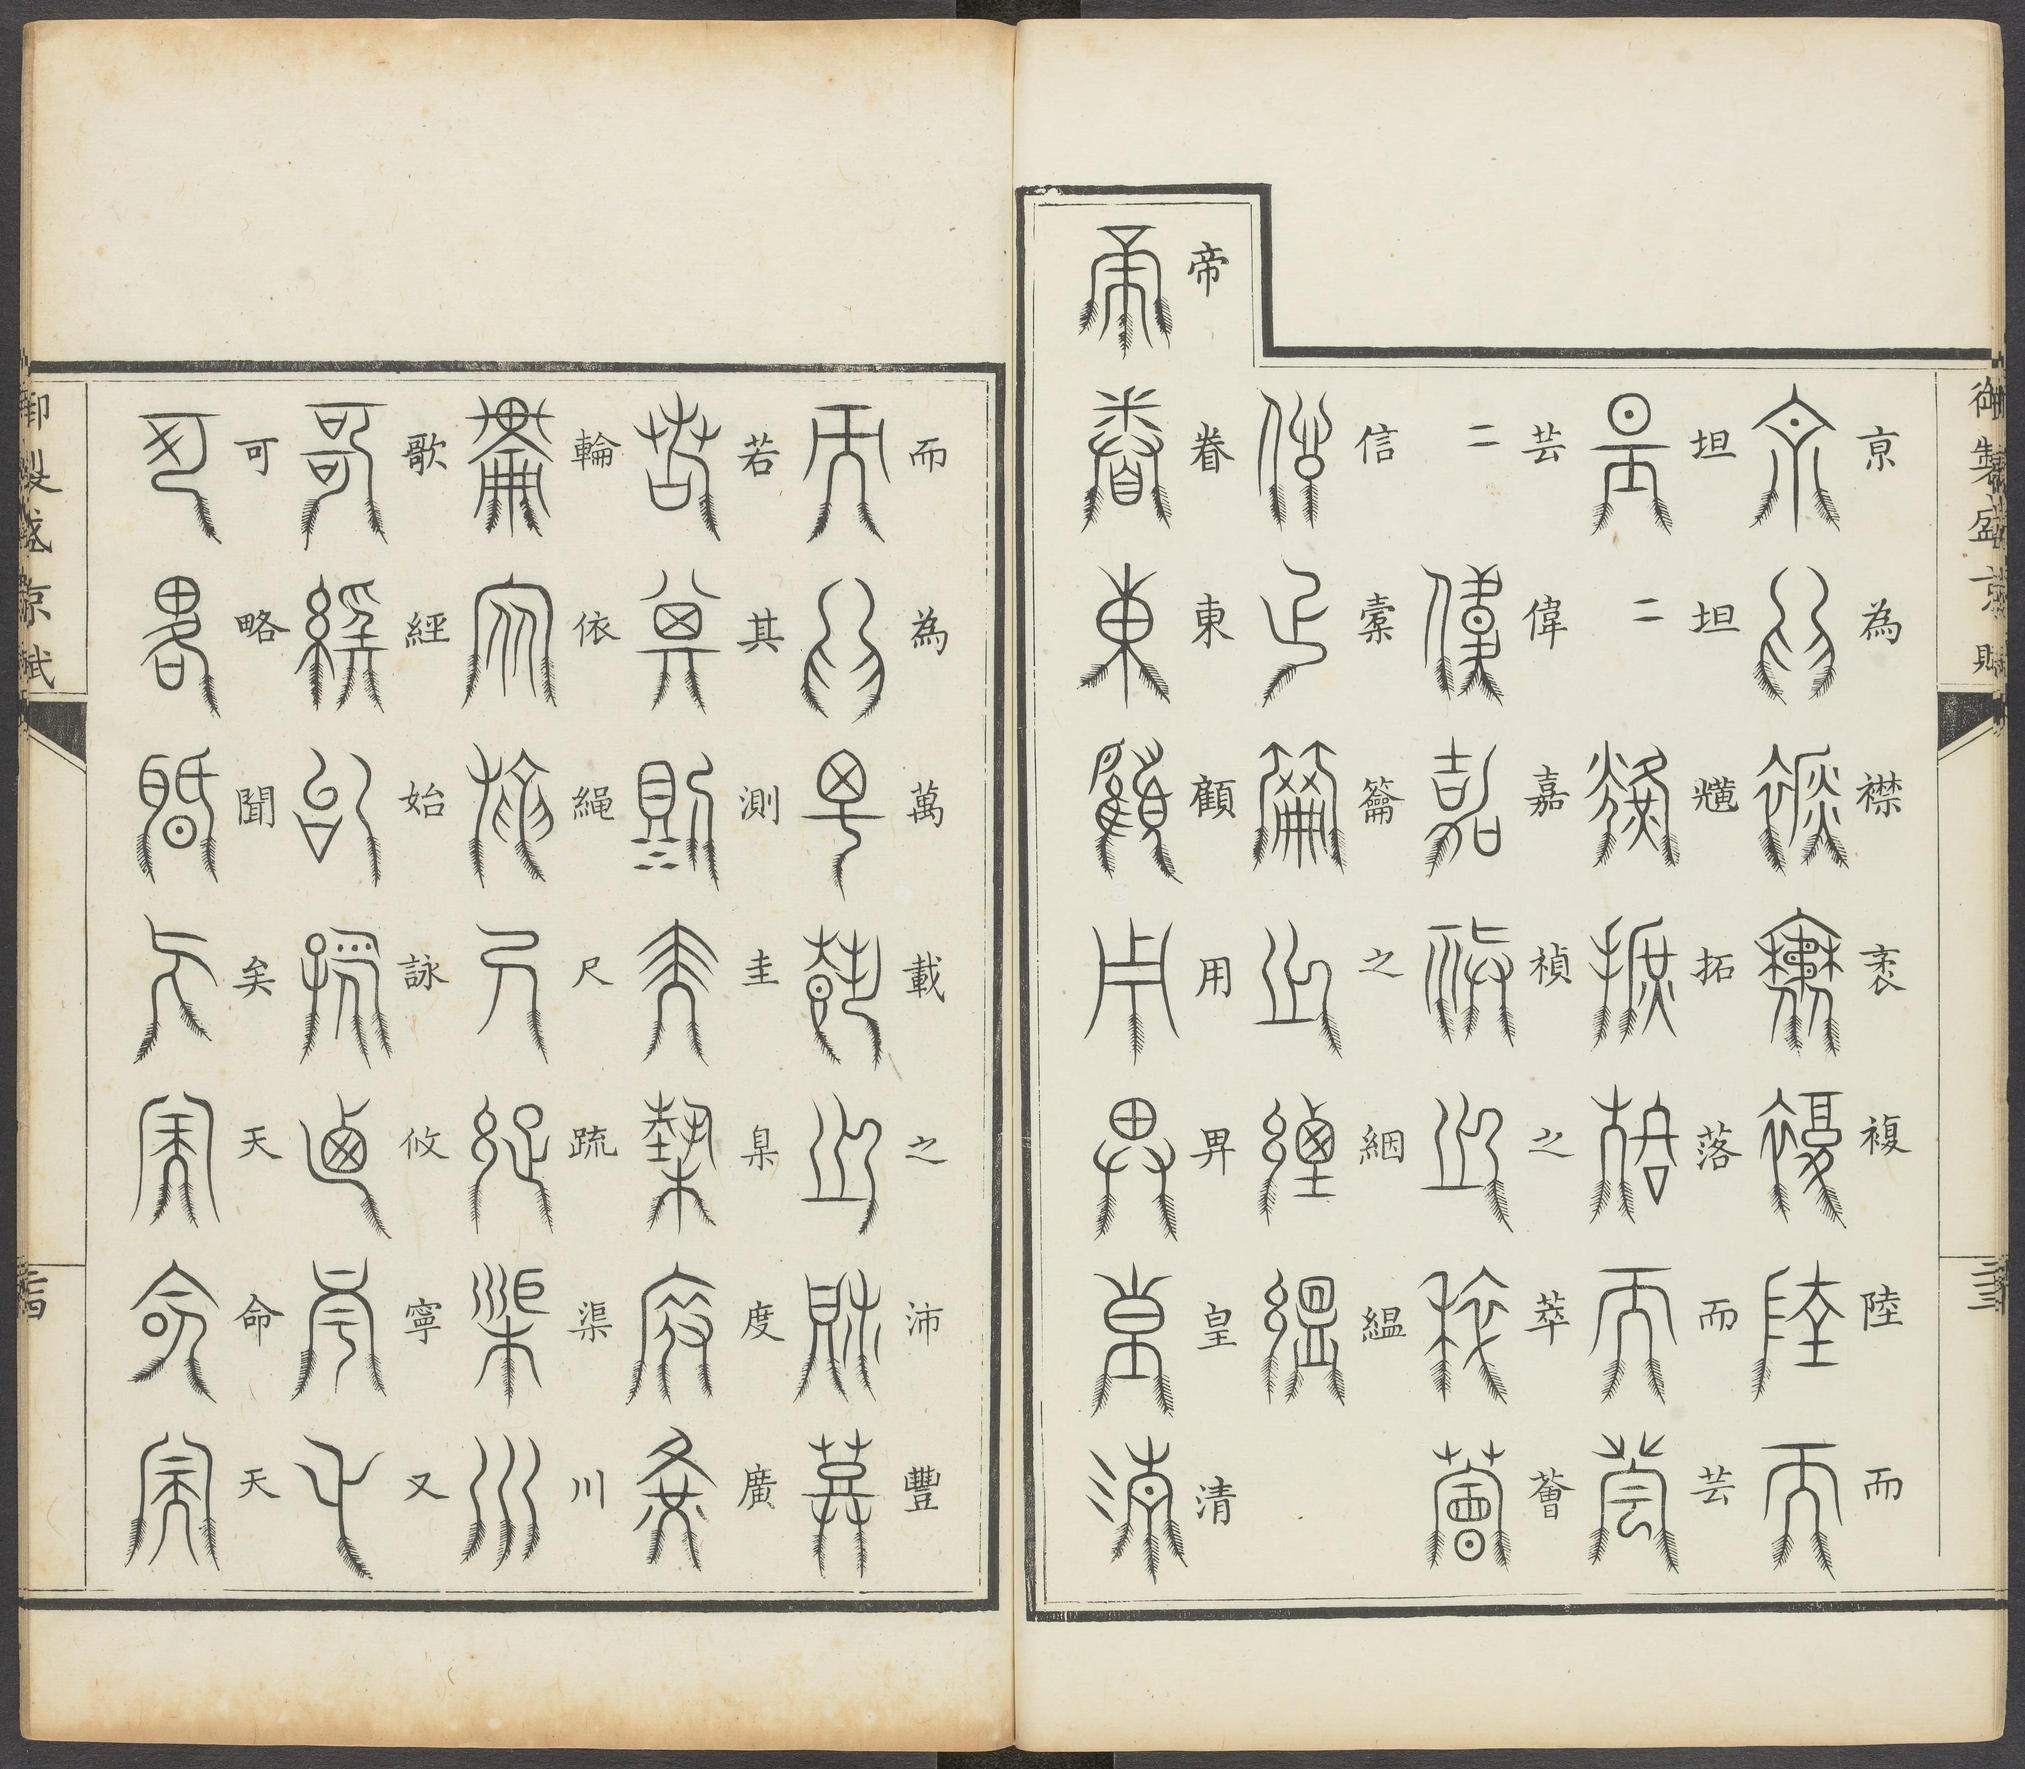 御製盛京賦
亰為襟袤複陸而
坦坦爌拓落而芸
芸偉嘉禎之萃薈
信橐籥之絪緼
帝眷東顧用畀皇清
二三
而為萬載之沛豐
若其測圭臬度廣
輪依繩尺疏渠川
歌經始詠攸寧又
可略聞矣天命天
御製盛京賦